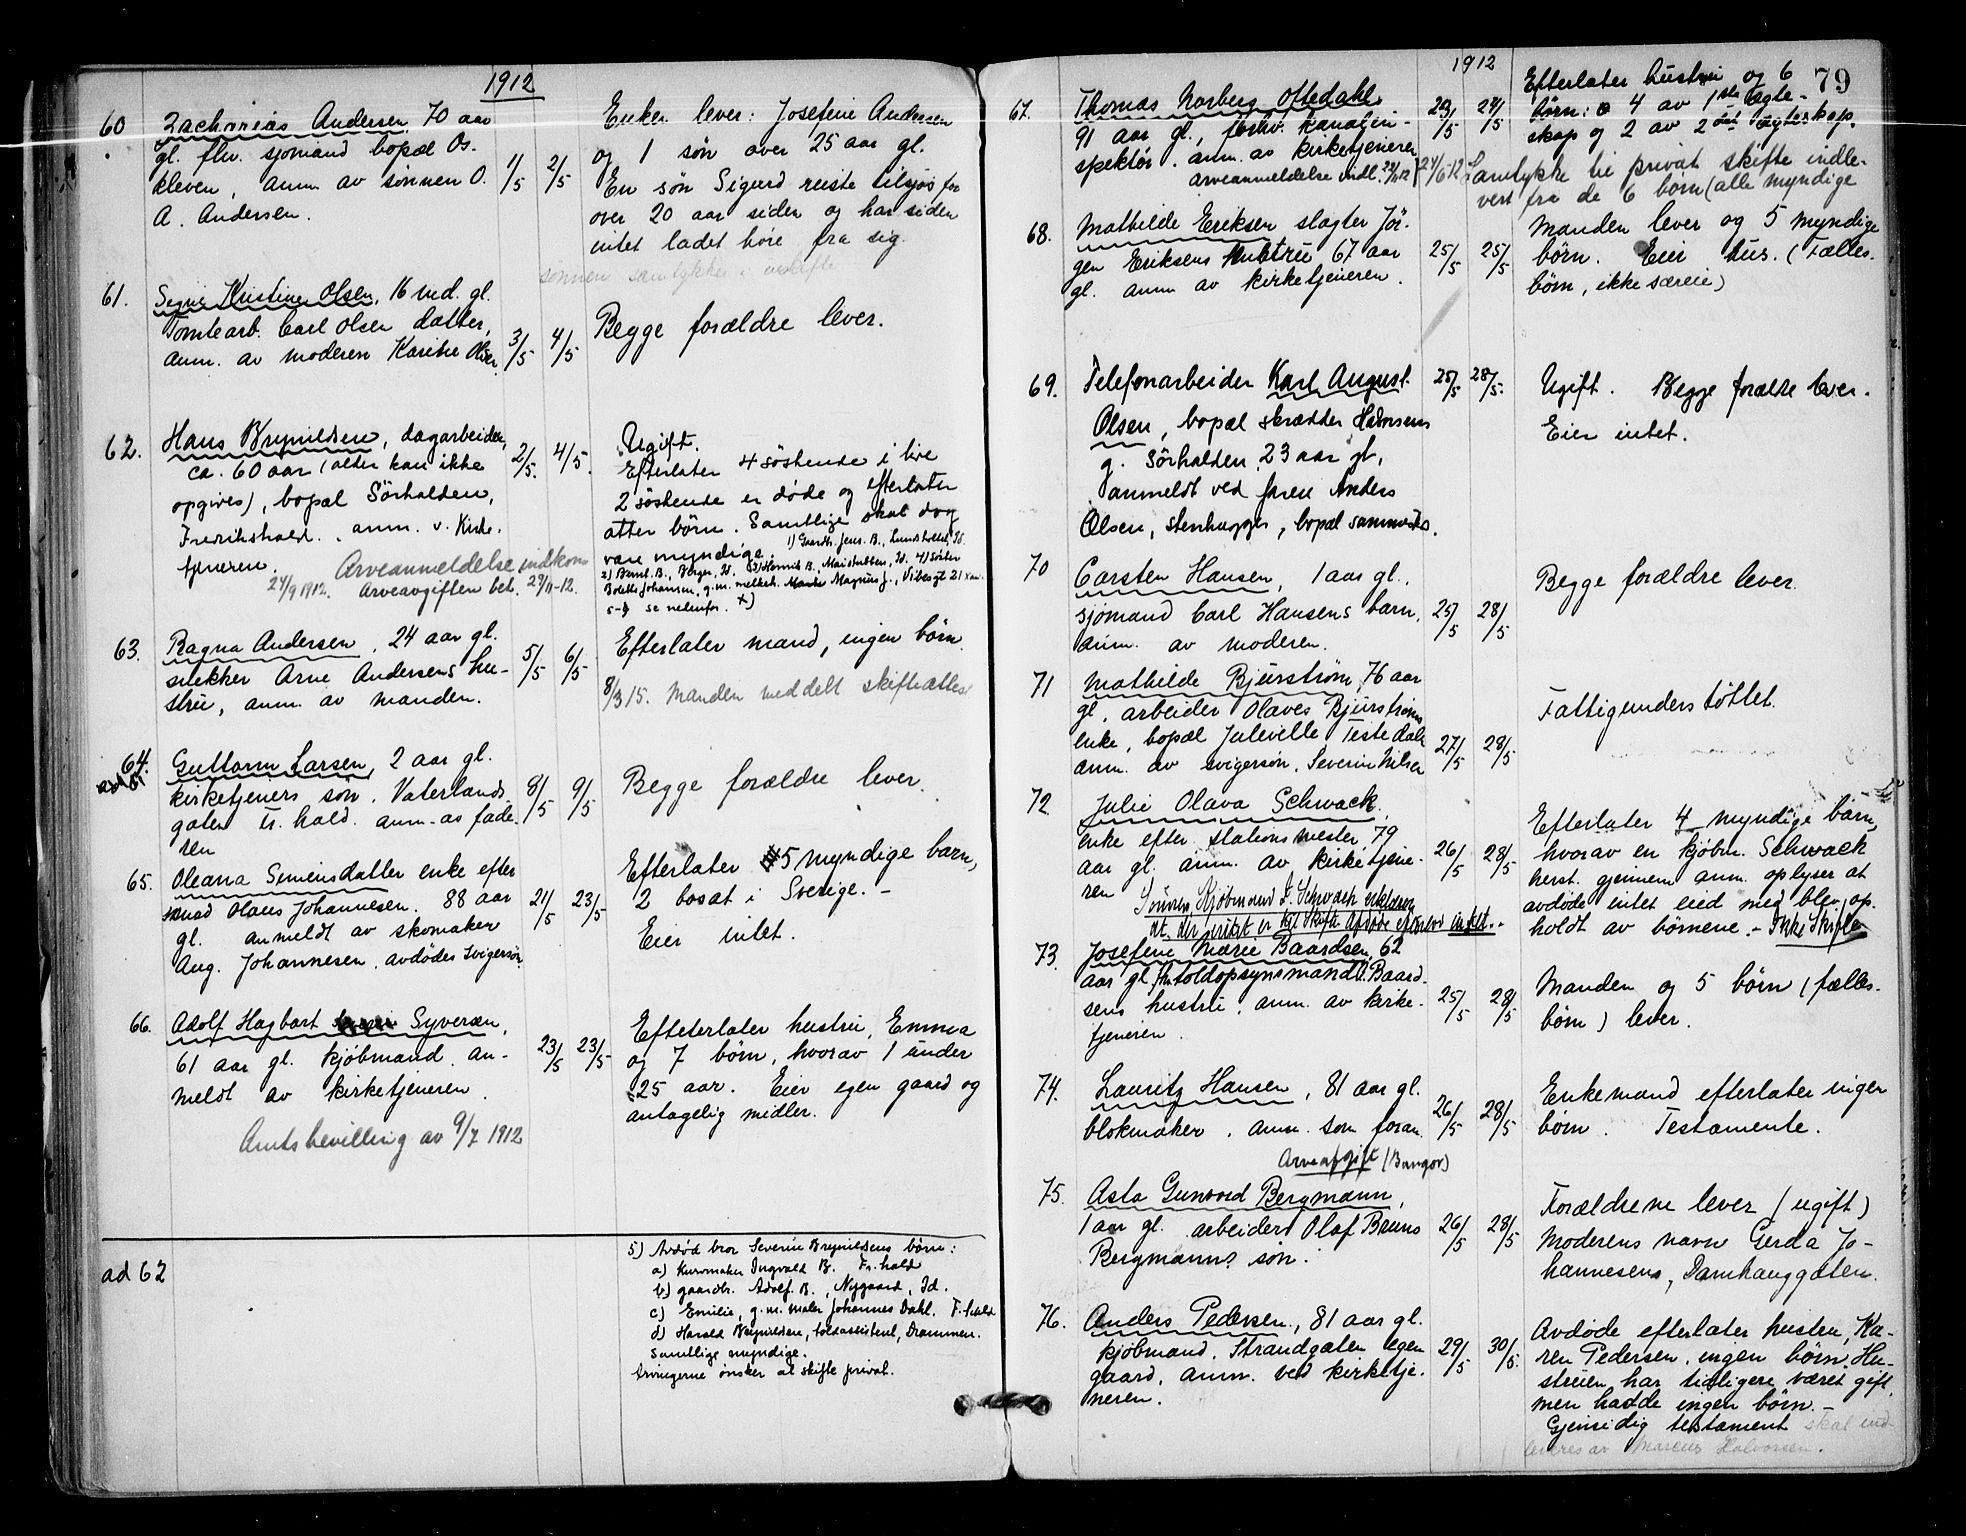 1912
60 Zacharias Andersen, 70 aar
gl. flv. sjømand bopæl Os-
kleven, anm av sønnen O.
A. Andersen.
1/5 2/5
Enken lever: Josefine Andersen
og 1 søn over 25 aar gl.
En søn Sigurd reiste tilsjøs for
over 20 aar siden og har siden
intet ladet høre fra sig.
sønnen samtykker i
61. Signe Kristine Olsen, 16 md. gl.
Tomtearb. Carl Olsen datter,
anm. av moderen Karine Olsen
3/5 4/5
Begge forældre lever.
62. Hans Brynildsen, dagarbeider,
ca. 60 aar (alder kan ikke
opgives), bopæl Sørhalden,
Fredrikshald., anm. v. Kirke-
tjeneren.
2/5. 4/5.
Arveanmeldelse indkom
24/9 1912. Arveavgiften bet. 29/11-12.
Ugift.
Efterlater 4 søskende i live
2 søskende er døde og efterlater
atter børn. Samtlige skal dog
være myndige.
1) Gaardbr. Jens B., Id.
2) Bernt. B., Berger, Id. 3) Henrik B., Id. 4) Søster
Bolette Johansen, g.m. Magnus J.,
5- se nedenfor. x)
63. Ragna Andersen, 24 aar gl.
snekker Arne Andersens hu-
stru, anm. av manden.
5/5 6/5
Efterlater mand, ingen børn
8/3 15. Manden meddelt skifteattest
64. Guttorm Larsen, 2 aar gl.
kirketjeners søn. Vaterlands
gaten Fr. hald. anm. av fade-
ren
8/5 9/5
Begge forældre lever.
65. Oleana Simensdatter enke efter
Olaus Johannesen. 88 aar
gl. anmeldt av skomaker
Aug. Johannesen, avdødes Svigersøn.
21/5 23/5
Efterlater 5 myndige barn,
2 bosat i Sverige. -
Eier intet.
66. Adolf Hagbart Syversen,
61 aar gl. kjøbmand. an-
meldt av kirketjeneren.
23/5 23/5
Efterlater hustru, Emma
og 7 børn, hvorav 1 under
25 aar. Eier egen gaard og
antagelig midler.
Amtsbevilling av 9/7 1912
ad 62
5) Avdød bror Severin Brynildsens børn:
a) Kurvmaker Ingvald B. Fr.hald
b) gaardbr. Adolf. B., Nygaard, Id.
c) Emilie, g.m. maler Johannes Dahl. F.hald
d) Harald Brynildsen, toldassistent, Drammen.
Samtlige myndige.
Arvingerne ønsker at skifte privat.
1912
79
67. Thomas Norberg Oftedahl
91 aar gl., forhv. kanalin-
spektør. anm. av kirketjeneren
Arveanmeldelse indl. 24/6-12
23/5 24/5
Efterlater hustru og 6
børn: 4 av 1ste ægte-
skap og 2 av 2det ægteskap.
Samtykke til privat skifte indle-
vert fra de 6 børn (alle myndige
68. Mathilde Eriksen slagter Jør-
gen Eriksens hustru 67 aar
gl. anm av kirketjeneren.
25/5 25/5
Manden lever og 5 myndige
børn. Eier hus. (Fælles-
børn, ikke særeie)
69. Telefonarbeider Karl August
Olsen, bopæl skrædder Halvorsens
g. Sørhalden, 23 aar gl,
anmeldt ved faren Anders
Olsen, stenhugger, bopæl sammesteds.
25/5 28/5.
Ugift. Begge forældre lever.
Eier intet.
70 Carsten Hansen, 1 aar gl.,
sjømand Carl Hansens barn,
anm. av moderen.
25/5 28/5
Begge forældre lever.
71 Mathilde Bjurstrøm, 76 aar
gl, arbeider Olaves Bjurstrøms
enke, bopæl Julevelle Tistedalen
anm. av svigersøn. Severin Nilsen
27/5 28/5
Fattigunderstøttet.
72. Julie Olava Schwack,
enke efter stationsmester, 79
aar gl. anm. av kirketjene-
ren
26/5 28/5
Sønnen, Kjøbmand Schwack erklærer
at der intet er til Skifte. Avdøde eiendes intet. -
Efterlater 4 myndige børn,
hvorav en kjøbm. Schwack
herst. gjennem anm. oplyser at
avdøde intet eied med blev op-
holdt av børnene. - Ikke Skifte
73. Josefine Marie Baardsen, 62
aar gl. fhv. toldopsynsmand Baard-
sens hustru, anm. av kirke-
tjeneren.
25/5 28/5
Manden og 5 børn (fælles-
børn) lever.
74. Lauritz Hansen, 81 aar gl.
blokmaker. anm. som foran.
26/5 28/5
Arveafgift (Bangor)
Enkemand efterlater ingen
børn. Testamente.
75. Asta Gunvord Bergmann,
1 aar gl. arbeider Olaf Bruns
Bergmanns søn.
26/5 28/5
Forældrene lever (ugift)
Moderens navn Gerda Jo-
hannesens, Damhauggaten.
76. Anders Pedersen., 81 aar gl.
kjøbmand. Strandgaten egen
gaard, anm. ved kirketje-
neren.
29/5 30/5.
Avdøde efterlater hustru, Ka-
ren Pedersen. ingen børn. Hu-
struen har tidligere været gift,
men hadde ingen børn. -
Gjensidig testament skal ind-
leveres av Marcus Halvorsen.